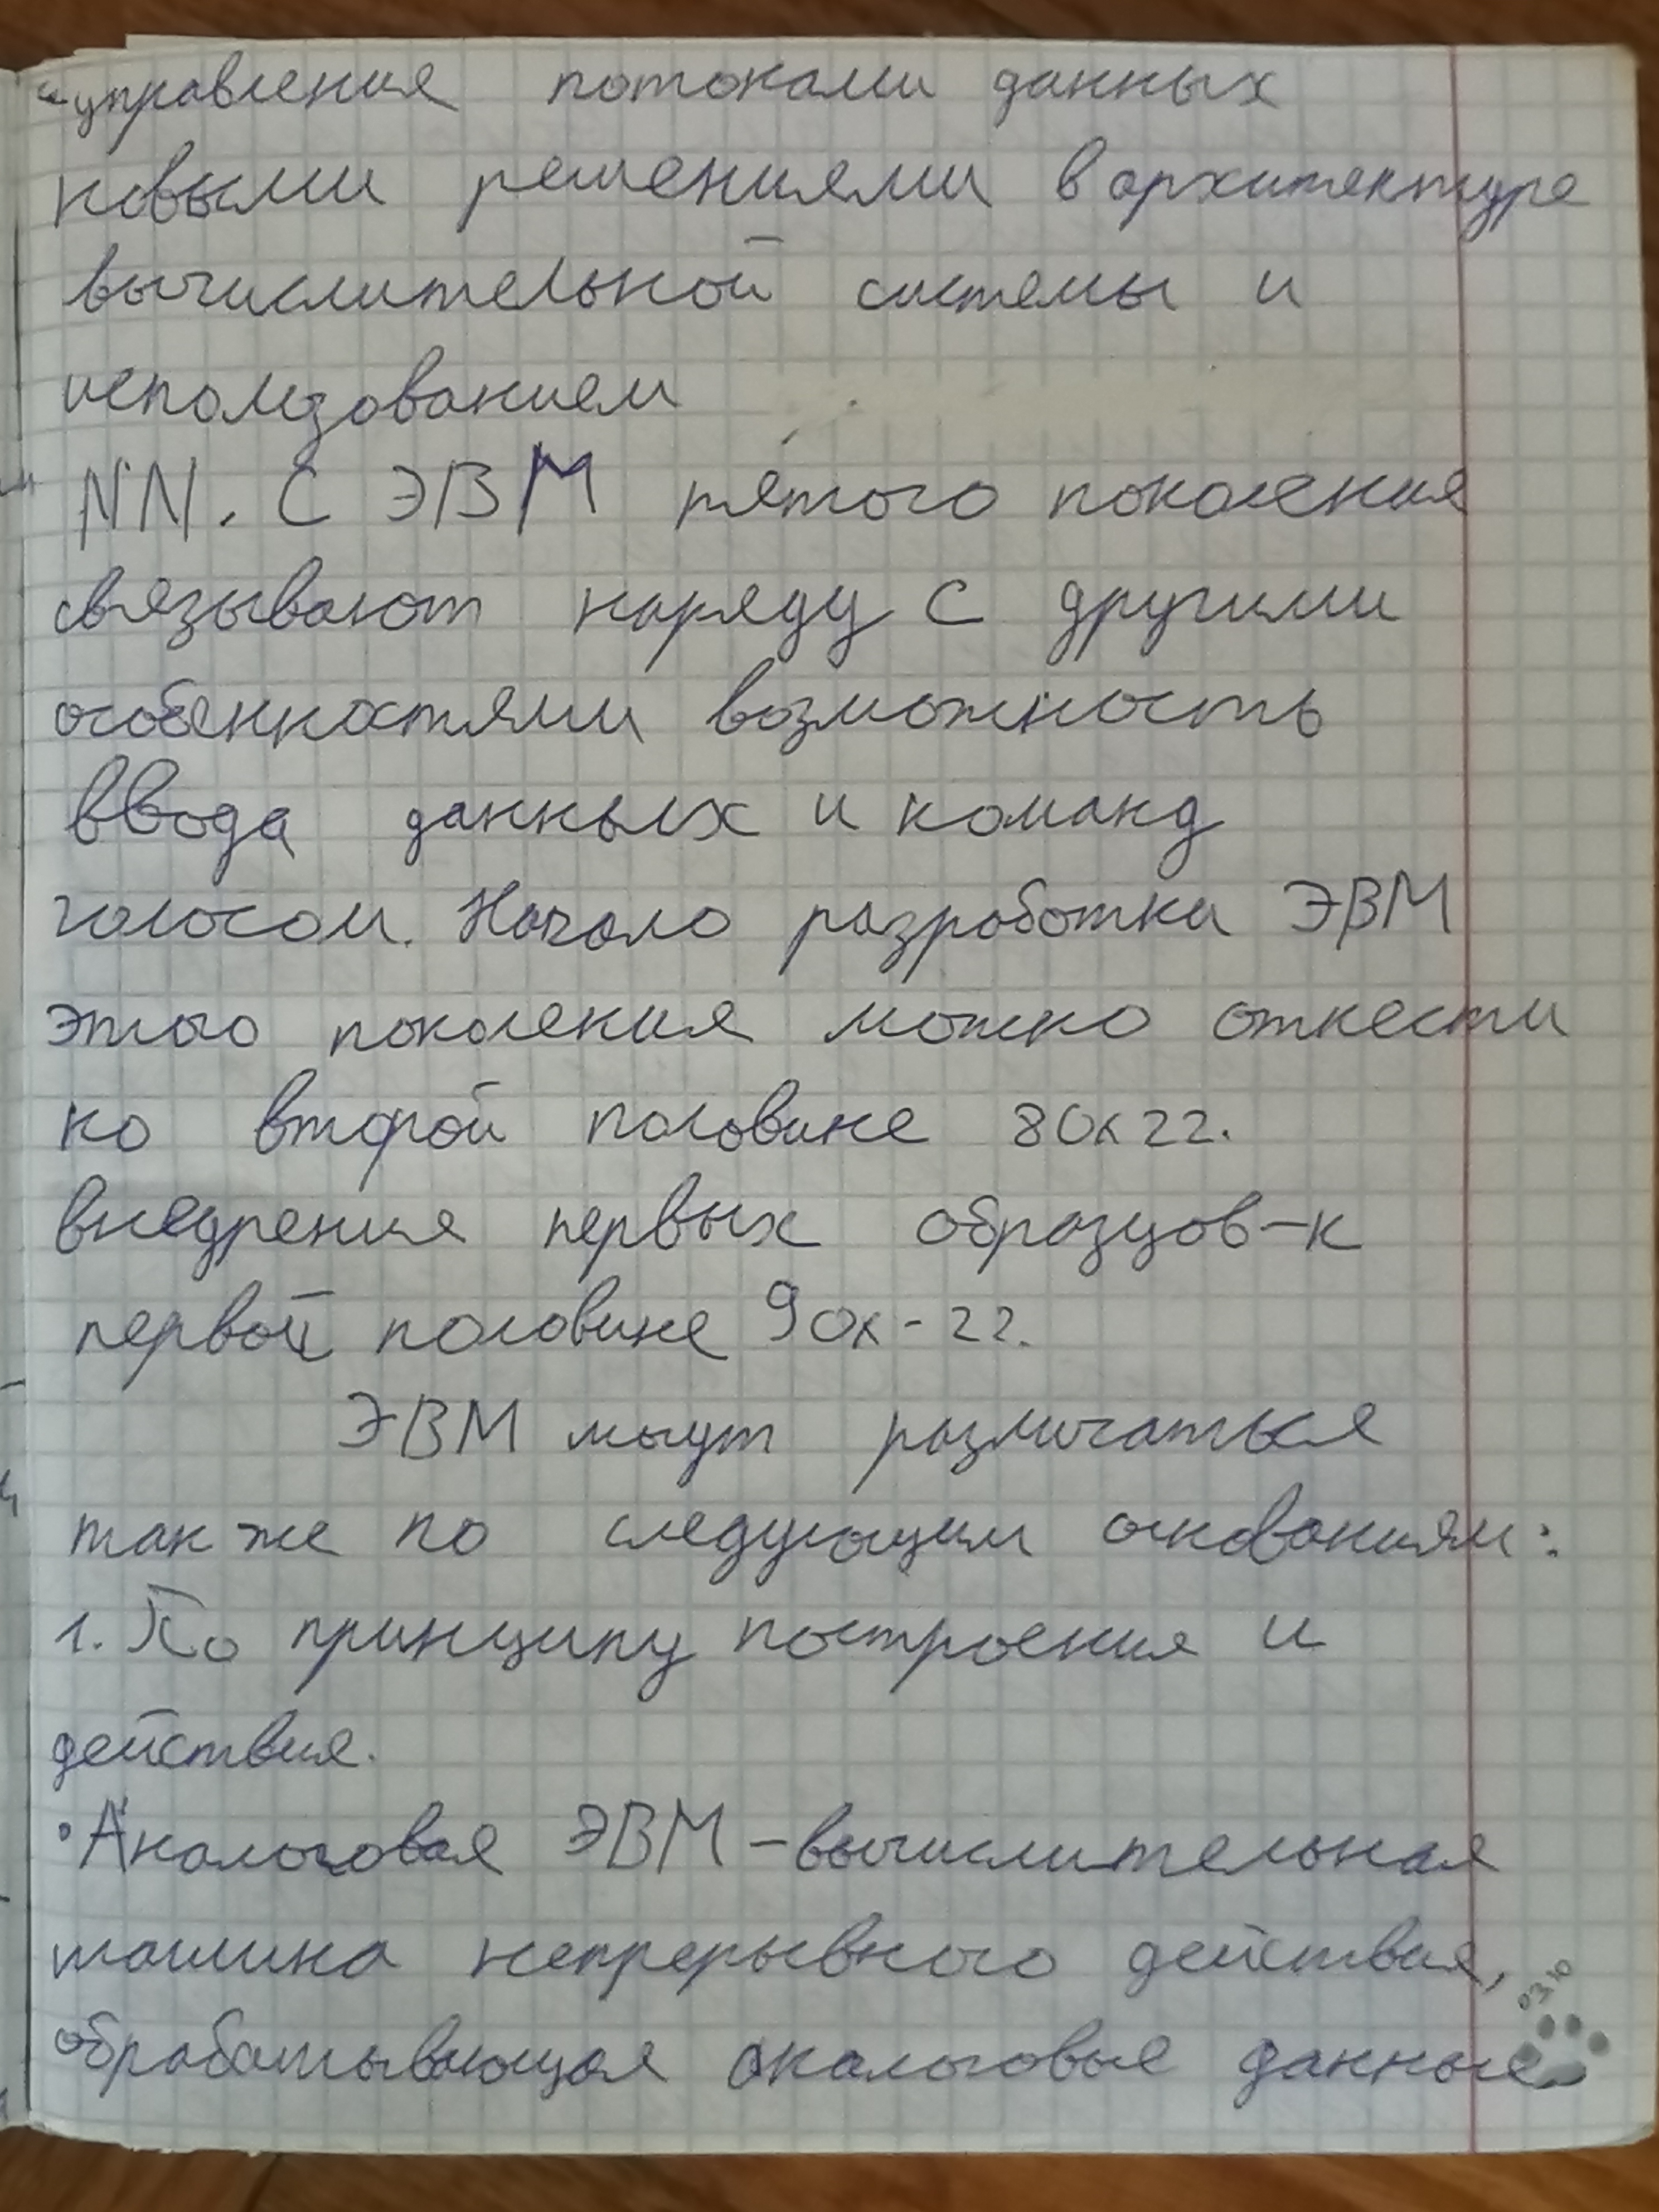 управления потоками данных
новыми решениями в архитектуре
вычислительной системы и
исползованием
NN. С ЭВМ пятого поколения
связывают наряду с другими
особенностями возможность
ввода данных и команд
голосом. Начало разработки ЭВМ
этого поколения можно отнести
ко второй половине 80х гг.
внедрения первых образцов-к
первой половине 90х-гг.
ЭВМ могут различаться
так же по следующим основаниям:
1. По принципу построения и
действия.
•Аналоговая ЭВМ-вычислительная
машина непрерывного действия,
обрабатывающая аналоговые данные